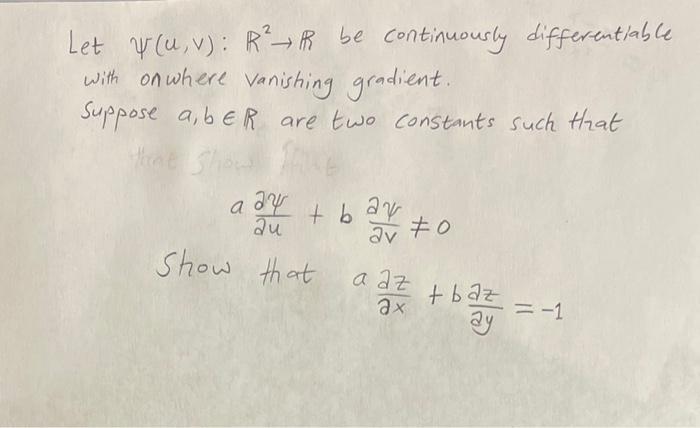 Let ψ(u,v): ℝ² → ℝ be continuously differentiable
with onwhere vanishing gradient.
Suppose a,b ∈ ℝ are two constants such that
that show that
a ∂ψ/∂u + b ∂ψ/∂v ≠ 0
Show that a ∂z/∂x + b ∂z/∂y = -1